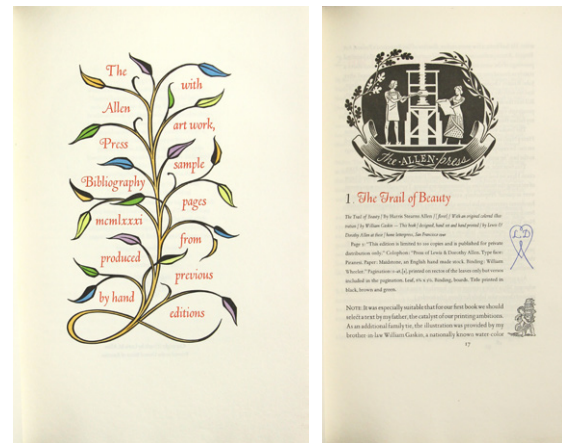 The
Allen
Press
Bibliography
mcmlxxxi
produced
by hand
with
art work,
sample
pages
from
previous
editions
The · ALLEN · press
1 The Trail of Beauty
The Trail of Beauty / by Harris Stearns Allen / [floret] / With an original colored illus-
tration / by William Gaskin — This book / designed, hand-set and hand-printed / by Lewis &
Dorothy Allen at their / home letterpress, San Francisco
Page 2: "This edition is limited to 100 copies and is published for private
distribution only." Colophon: "Press of Lewis & Dorothy Allen. Type
Paper: Maidstone, an English hand-made stock. Binding: William
Wheeler." Pagination printed on rectos of the leaves only but versos
included in the pagination. Leaf, Binding, boards. Title printed in
black, brown and green.
L & D
NOTE: It was especially suitable that for our first book we should
select a text by my father, the catalyst of our printing ambitions.
As an additional family tie, the illustration was provided by my
brother-in-law William Gaskin, a nationally known water color
17